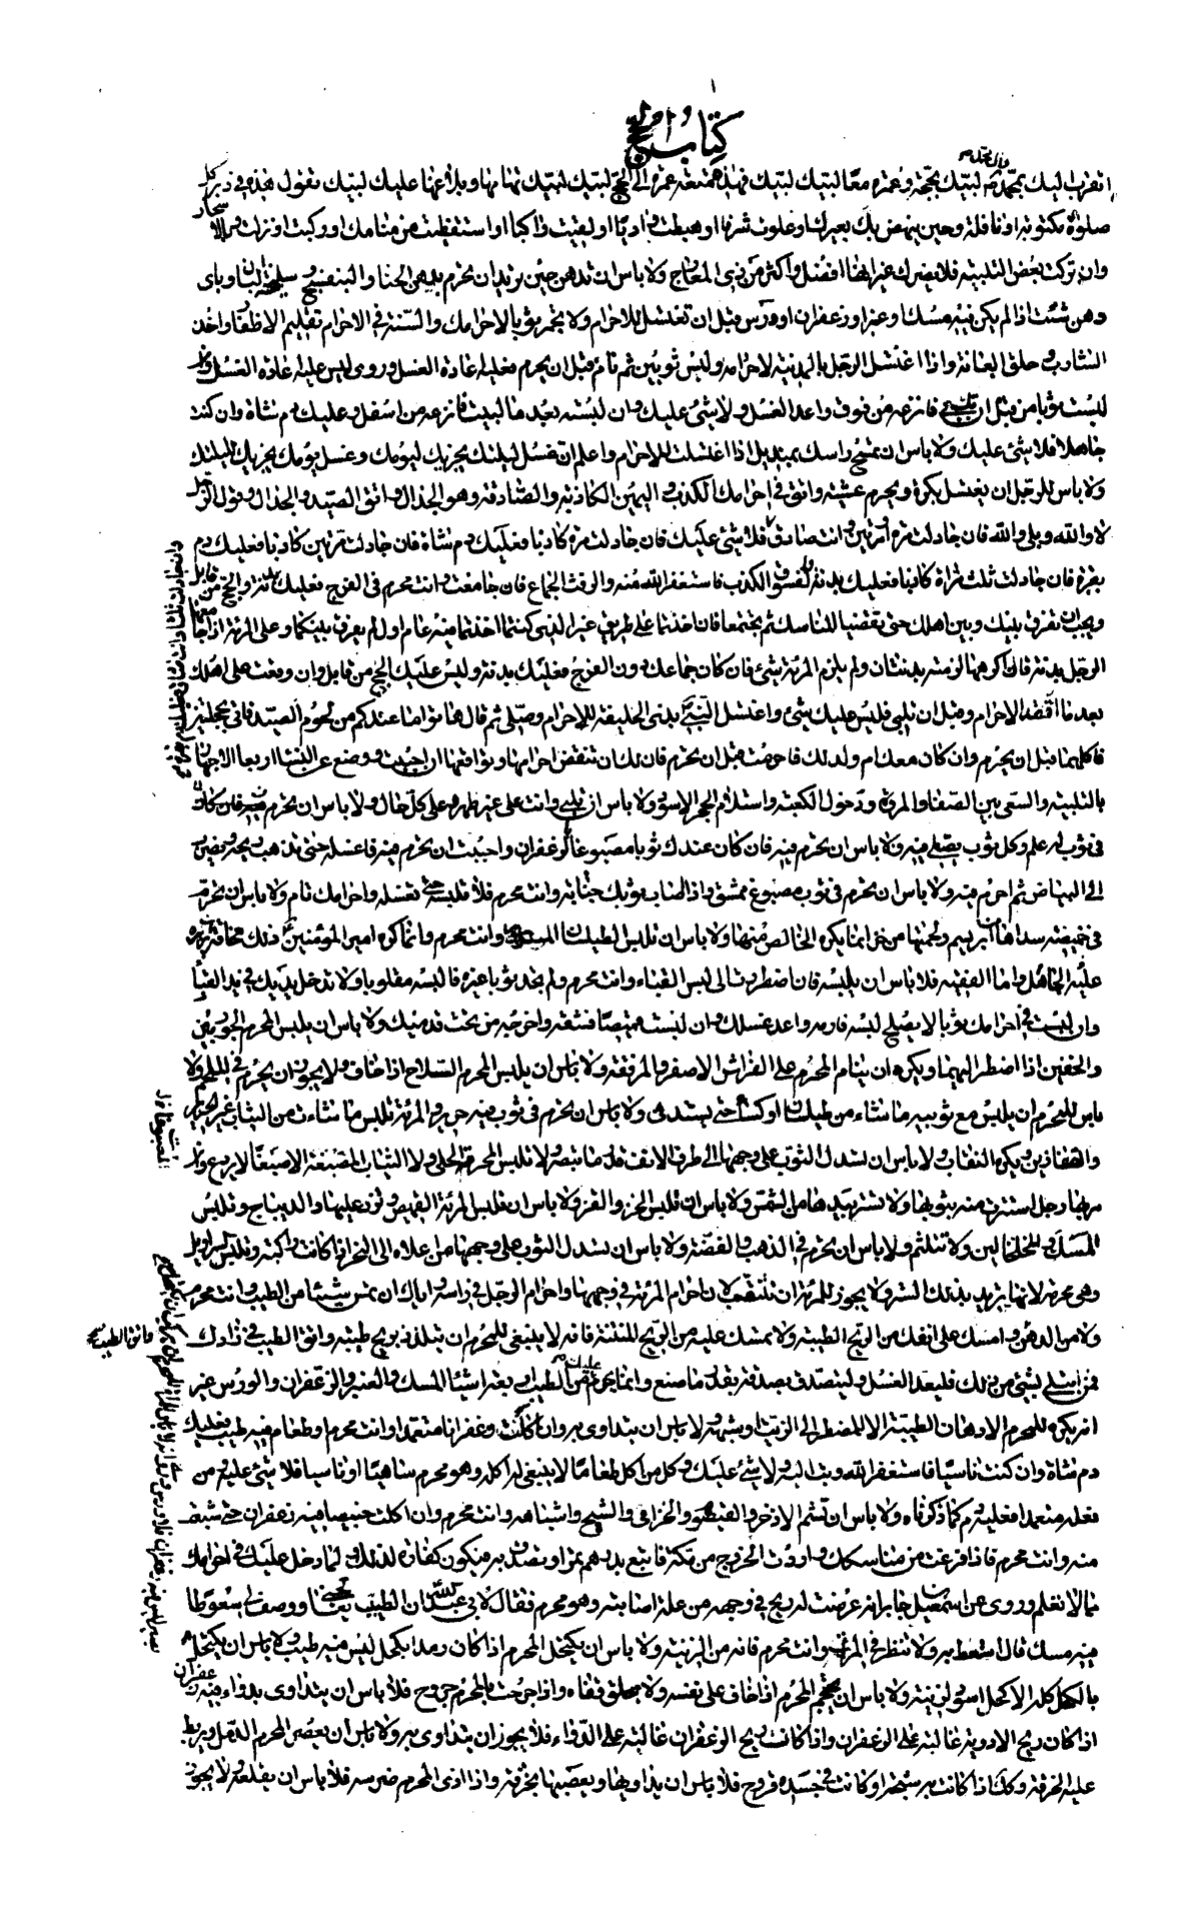 كتاب الحج
اتقرب اليك بمحمد وآل محمد لبيك بحجة وعمرة معا لبيك لبيك فهذه متعة عمرة الى الحج لبيك لبيك تمامها وبلاغها عليك لبيك تقول هذه في دبر كل
صلوة مكتوبة او نافلة وحين ينهض بك بعيرك او علوت شرفا او هبطت واديا او لقيت راكبا او استيقظت من منامك او ركبت او نزلت وبالاسحار
وان تركت بعض التلبية فلا يضرك غير انها افضل واكثر من ذي المعارج ولا باس ان تدهن حين تريد ان تحرم بدهن الحنا والبنفسج وسليخة البان وباي
دهن شئت اذا لم يكن فيه مسك او عنبر او زعفران او ورس قبل ان تغتسل للاحرام ولا تجمر ثوبا لاحرامك والسنة في الاحرام تقليم الاظفار واخذ
الشارب وحلق العانة واذا اغتسل الرجل بالمدينة لاحرامه ولبس ثوبين ثم نام قبل ان يحرم فعليه اعادة الغسل وروى ليس عليه اعادة الغسل وان
لبست ثوبا من قبل ان تلبي فانزعه من فوق واعد الغسل ولا شئ عليك وان لبسته بعد ما لبيت فانزعه من اسفل وعليك دم شاة وان كنت
جاهلا فلا شئ عليك ولا باس ان تمسح راسك بمنديل اذا اغتسلت للاحرام واعلم ان غسل ليلتك يجزيك ليومك وغسل يومك يجزيك لليلتك
ولا باس للرجل ان يغتسل بكرة ويحرم عشية واتق في احرامك الكذب واليمين الكاذبة والصادقة وهو الجدال واتق الصيد والجدال وقول الرجل
لا والله وبلى والله فان جادلت مرة او مرتين وانت صادق فلا شئ عليك فان جادلت مرة كاذبا فعليك دم شاة فان جادلت مرتين كاذبا فعليك دم
بقرة فان جادلت ثلث مرات كاذبا فعليك بدنة والفسوق الكذب فاستغفر الله منه والرفث الجماع فان جامعت وانت محرم في الفرج فعليك بدنة والحج من قابل
ويجب ان تفرق بينك وبين اهلك حتى تقضيا المناسك ثم تجتمعا فان اخذتما على طريق غير الذي كنتما اخذتما فيه عام اول لم يفرق بينكما وعلى المرئة اذا جامعها
الرجل بدنة فان اكرهها لزمته بدنتان ولم يلزم المرئة شئ فان كان جماعك دون الفرج فعليك بدنة وليس عليك الحج من قابل وان وقعت على اهلك
بعد ما تعقد الاحرام وقبل ان تلبي فليس عليك شئ واغتسل النبي بذي الحليفة للاحرام وصلى ثم قال هاتوا ما عندكم من لحوم الصيد فاتي بحجلتين
فاكلهما قبل ان يحرم وان كان معك ام ولد لك فاحرمت قبل ان تحرم فان لك ان تنقض احرامها وتواقعها ان احببت ووضع عن النسا اربعا الاجهار
بالتلبية والسعي بين الصفا والمروة ودخول الكعبة واستلام الحجر الاسود ولا باس ان تلبي وانت على غير طهر وعلى كل حال ولا باس ان تحرم
في ثوب له علم وكل ثوب يصلى فيه فلا باس ان تحرم فيه فان كان عندك ثوبا مصبوغا بالزعفران واحببت ان تحرم فيه فاغسله حتى يذهب ريحه ويضرب
الى البياض ثم احرم فيه ولا باس ان تحرم في ثوب مصبوغ ممشق واذا اصاب ثوبك جنابة وانت محرم فلا تلبسه حتى تغسله واحرامك تام ولا باس ان تحرم
في خميصة سداها ابريسم ولحمتها من خز انما يكره الخالص منها ولا باس ان تلبس الطيلسان وانت محرم وانما كره امير المؤمنين ذلك مخافة ان يزره
عليه الجاهل واما الفقيه فلا باس ان يلبسه فان اضطررت الى لبس القباء وانت محرم ولم تجد ثوبا غيره فالبسه مقلوبا ولا تدخل يديك في يد القبا
وان لبست في احرامك ثوبا لا يصلح لبسه فلب واعد غسلك وان لبست قميصا فشقه واخرجه من تحت قدميك ولا باس ان يلبس المحرم الجوربين
والخفين اذا اضطر اليهما ويكره ان ينام المحرم على الفراش الاصفر والمرفقة ولا باس ان يلبس المحرم السلاح اذا خاف ولا يجوز ان يحرم في الملحم ولا
باس للمحرم ان يلبس مع ثوبيه ما شاء من طيلسان او كساء حتى يستدفى ولا باس ان تحرم في ثوب فيه حرير والمرئة تلبس ما شاءت من الثياب غير الحرير
والقفازين ويكره النقاب ولا باس ان تسدل الثوب على وجهها الى طرف الانف قدر ما تبصر ولا تلبس المحرمة الحلي ولا الثياب المصبغة الا صبغا لا يردع وان
مر بها رجل استترت منه بثوبها ولا تستتر بيدها من الشمس ولا باس ان تلبس الخز والقز ولا باس ان تلبس المرئة القميص وتزر عليها والديباج وتلبس
المسك والخلخالين ولا تتلثم ولا باس ان تحرم في الذهب والفضة ولا باس ان تسدل الثوب على وجهها من اعلاه الى النحر اذا كانت راكبة وتلبس السراويل
وهي محرمة لانها تريد بذلك الستر ولا يجوز للمرئة ان تتنقب لان احرام المرئة في وجهها واحرام الرجل في راسه واياك ان تمس شيئا من الطيب وانت محرم
ولا من الدهن وامسك على انفك من الريح الطيبة ولا تمسك عليه من الريح المنتنة فانه لا ينبغي للمحرم ان يتلذذ بريح طيبة واتق الطيب في زادك
فمن ابتلى بشئ من ذلك فليعد الغسل وليتصدق بصدقة بقدر ما صنع وانما يحرم عليك من الطيب اربعة اشياء المسك والعنبر والزعفران والورس غير
انه يكره للمحرم الادهان الطيبة الا المضطر الى الزيت او شبهه ولا باس ان يتداوى به وان اكلت زعفرانا متعمدا وانت محرم او طعاما فيه طيب فعليك
دم شاة وان كنت ناسيا فاستغفر الله وتب اليه ولا شئ عليك وكل من اكل طعاما لا ينبغي له اكله وهو محرم ساهيا او ناسيا فلا شئ عليه ومن
فعله متعمدا فعليه دم كما ذكرناه ولا باس ان تشم الاذخر والقيصوم والخزامى والشيح واشباهه وانت محرم وان اكلت خبيصا فيه زعفران حتى شبعت
منه وانت محرم فاذا فرغت من مناسكك واردت الخروج من مكة فابتع بدرهم تمرا وتصدق به فيكون كفارة لذلك لما دخل عليك في احرامك
مما لا تعلم وروى عن اسمعيل بن جابر انه عرضت له ريح في وجهه من علة اصابته وهو محرم فقال لابي عبد الله ان الطبيب يعالجني وصف لي سعوطا
فيه مسك قال استعط به ولا تنظر في المرآة وانت محرم فانه من الزينة ولا باس ان يكتحل المحرم اذا كان رمدا بكحل ليس فيه طيب ولا باس ان يكتحل
بالكحل كله الا كحل اسود لزينة ولا باس ان يحتجم المحرم اذا خاف على نفسه ولا يحلق قفاه واذا جرحت بالمحرم جروح فلا باس ان يتداوى بدواء فيه زعفران
اذا كان ريح الادوية غالبة على الزعفران واذا كانت ريح الزعفران غالبة على الدواء فلا يجوز ان يتداوى به ولا باس ان يعصر المحرم الدمل ويربط
عليه الخرقة وكك اذا كانت به شجة او كانت في جسده قروح فلا باس ان يداويها ويعصبها بخرقة واذا اذى المحرم ضرسه فلا باس ان يقلعه ولا يجوز
واتق الطيب